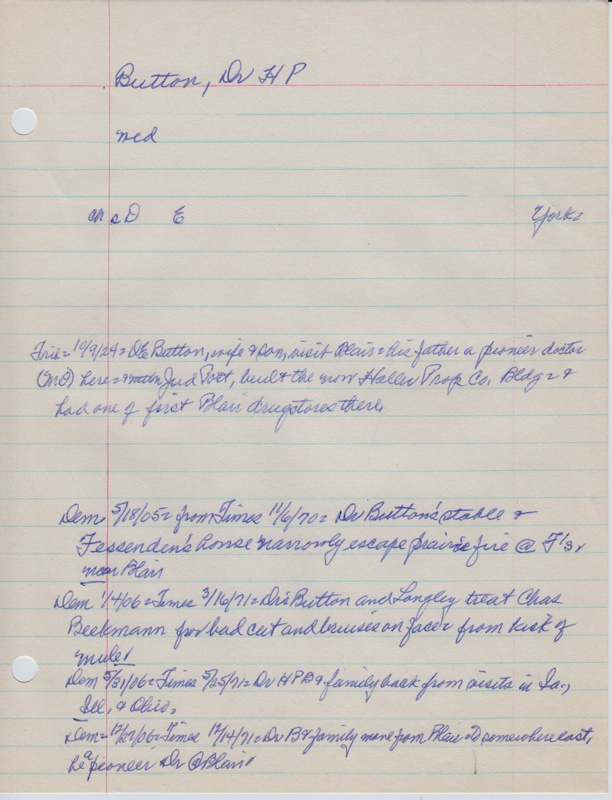 Button, Dr H P
med
D E York
Trib = 10/9/24 = D E Button, wife & son, visit Blair = his father a pioneer doctor
(MD) here = Jud Post, built the now Haller Prop Co. Bldg = &
had one of first Blair drugstores there.
Dem 5/18/05 = from Times 11/6/70 = Dr Button's stable &
Fessenden's house narrowly escape prairie fire @ F's,
near Blair
Dem 1/4/06 = Times 3/16/71 = Drs Button and Langley treat Chas
Beekmann for bad cut and bruises on face = from kick of
mule
Dem 5/31/06 = Times 5/25/71 = Dr H P B & family back from visits in Ia.,
Ill, & Ohio.
Dem = 12/27/06 = Times 12/14/71 = Dr B & family move from Blair to somewhere east,
he "a pioneer Dr @ Blair"